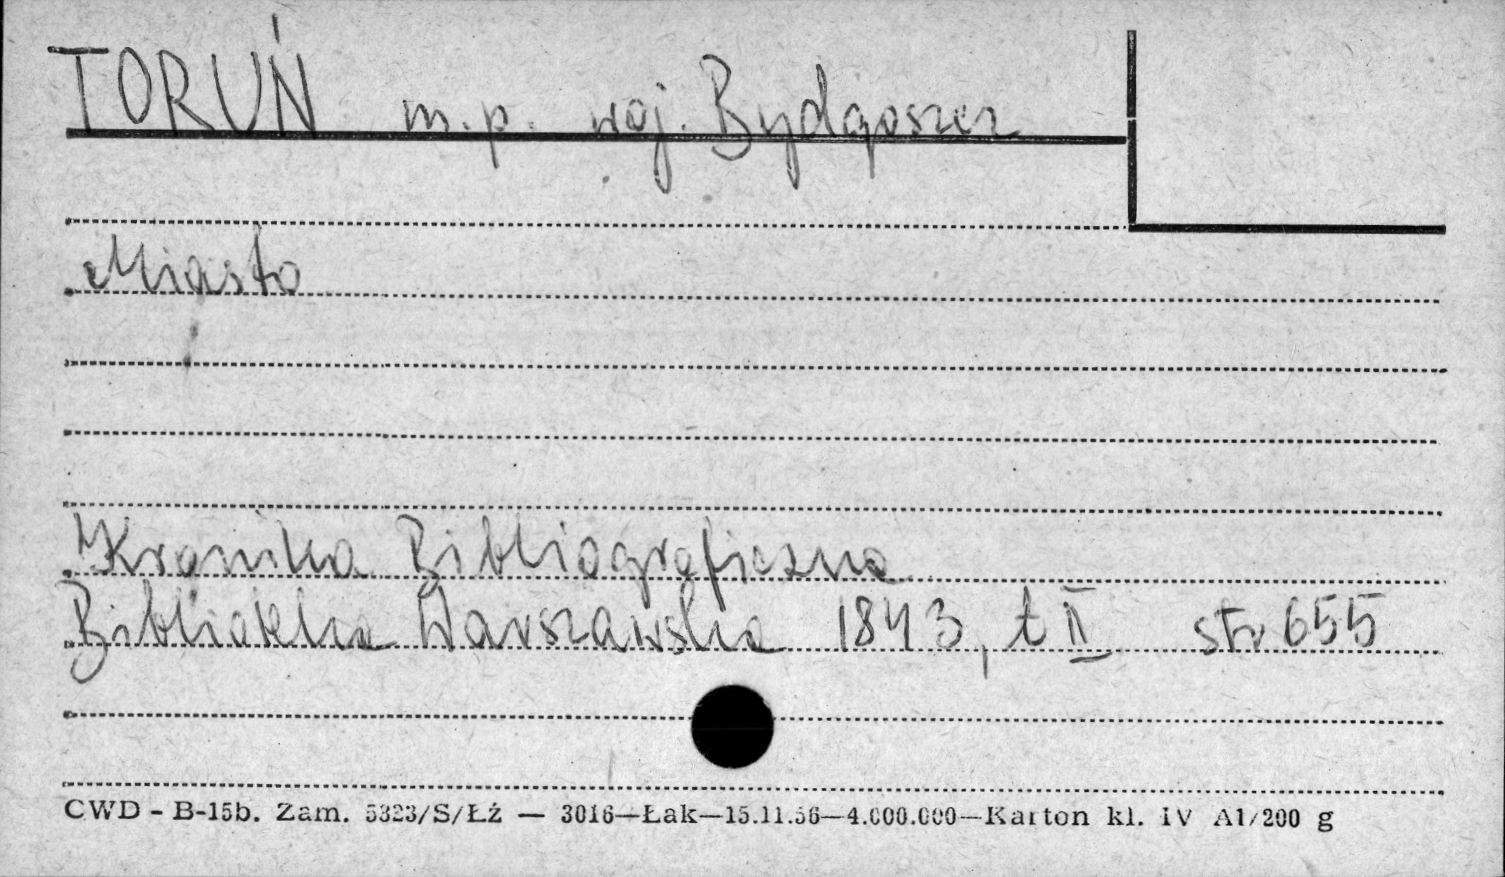 TORUŃ m.p. woj. Bydgoszcz
Miasto
Kronika Bibliograficzna
Biblioteka Warszawska 1843, t II str 655
CWD - B-15b. Zam. 5323/S/Łż — 3016—Łak—15.11.56—4.000.000—Karton kl. IV A1/200 g